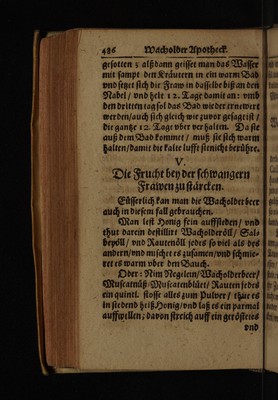 486 Wacholder Apotheck.
gesotten; alßdann geisset man das Wasser
mit sampt den Kräutern in ein warm Bad
vnd setzt sich die Fraw in dasselbe biß an den
Nabel / vnd helt 12. Tage damit an: vnnd
den dritten tag sol das Bad wieder ernewert
werden / auch sich gleich wie zuvor gesagt ist /
die gantze 12. Tage vber verhalten. Da sie
auß dem Bad kommet / muß sie sich warm
halten / damit die kalte lufft sie nicht berühre.
V.
Die Frucht bey der schwangern
Frawen zu stärcken.
Eusserlich kan man die Wacholderbeer
auch in diesem fall gebrauchen.
Man lest Honig fein auffsieden / vnd
thut darein destillirt Wacholderöll / Sal-
beyöll / vnd Rautenöll jedes so viel als des
andern / vnd mischet es zusamen / vnd schmie-
ret es warm vber den Bauch.
Oder: Nim Negelein / Wacholderbeer /
Muscatnüß / Muscatenblüet / Rauten jedes
ein quintl. stosse alles zum Pulver / thue es
in siedend heiß Honig / vnd laß es ein par mal
auffwellen; davon streich auff ein geröstetes
vnd